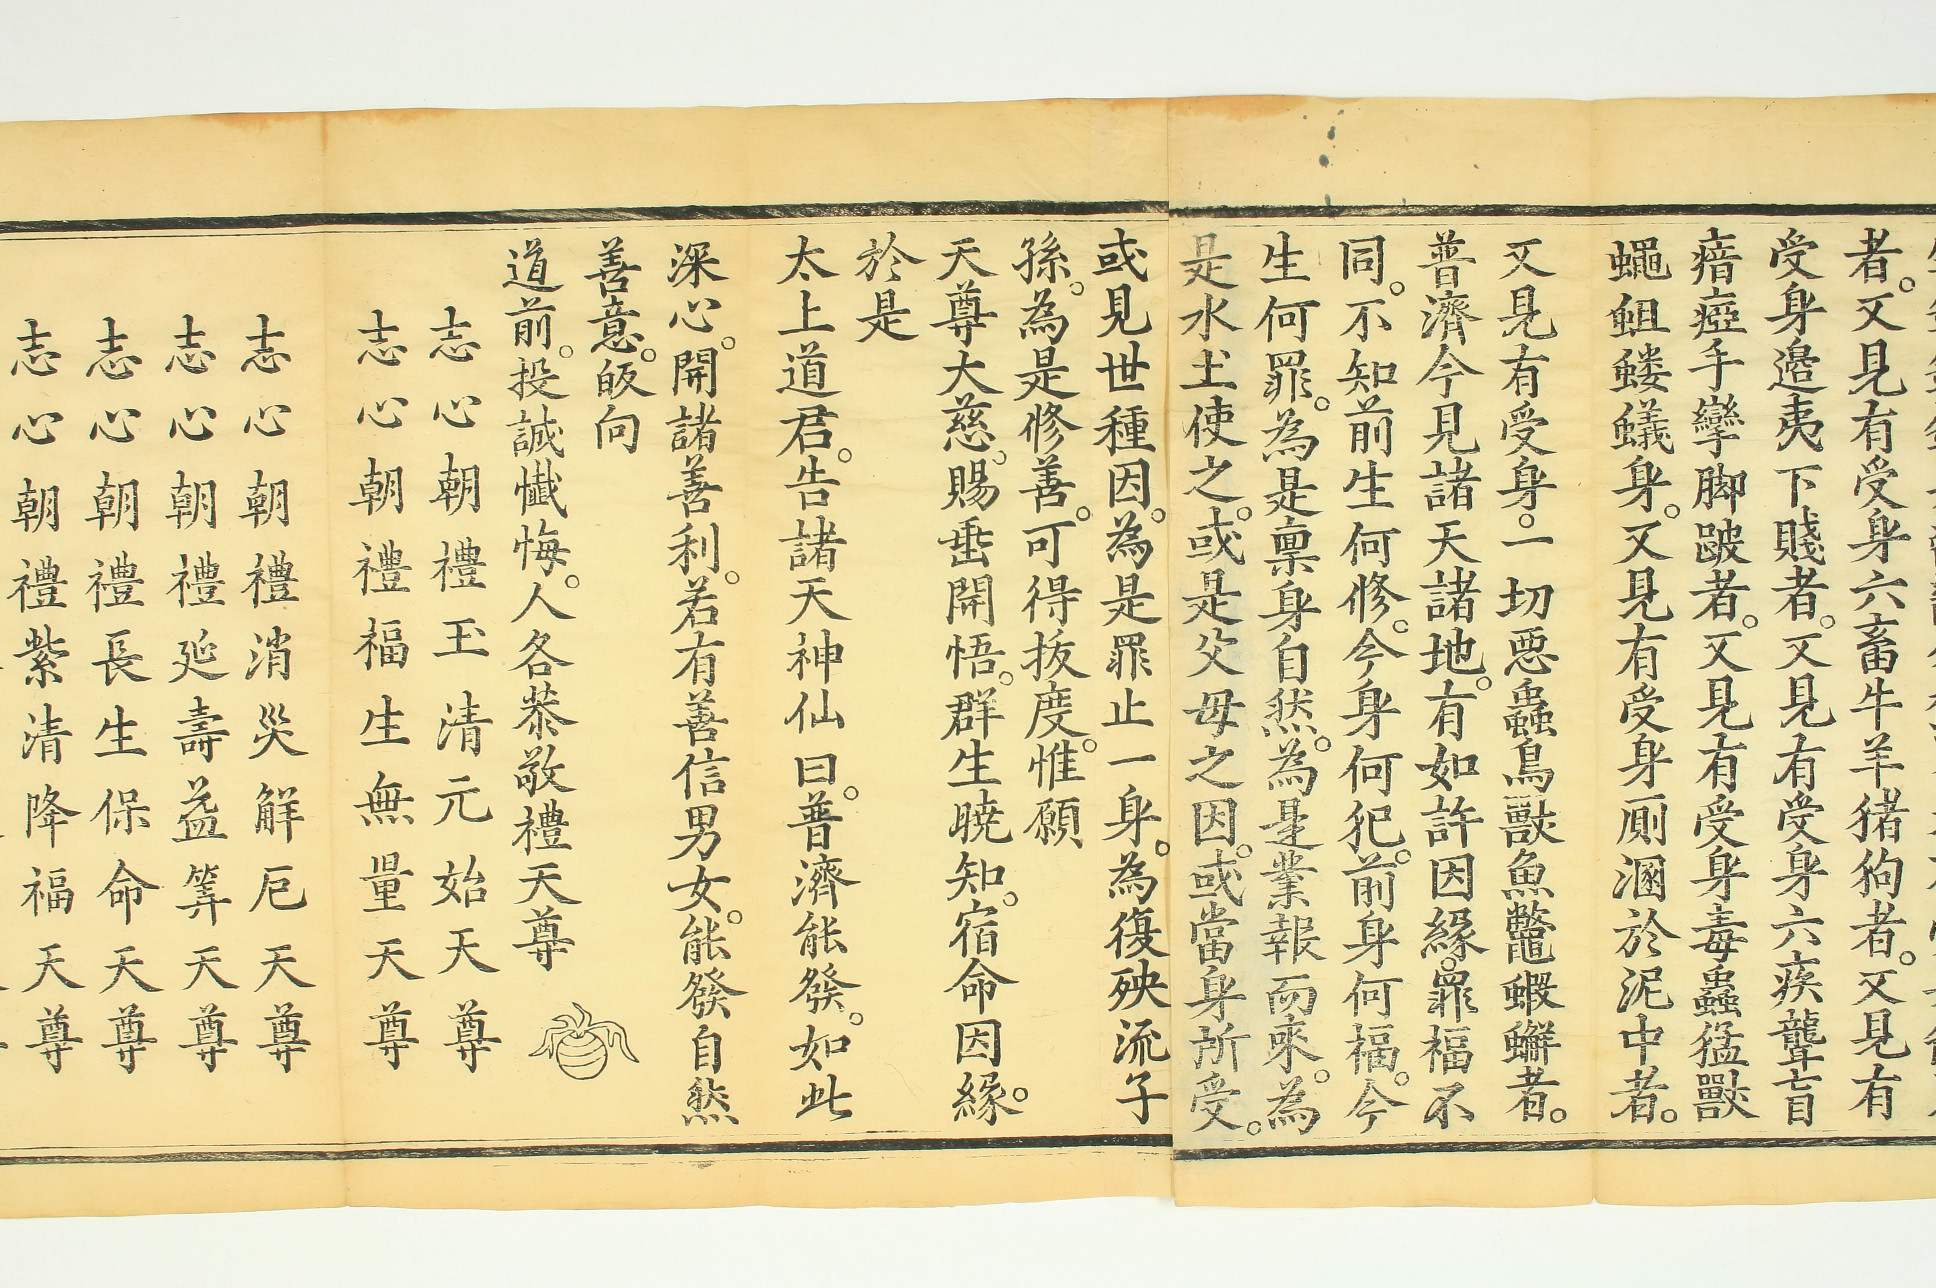 者。又見有受身六畜牛羊猪狗者。又見有
受身邊夷下賤者。又見有受身六疾聾盲
瘖瘂手攣脚跛者。又見有受身毒蟲猛獸
蠅蛆螻蟻身。又見有受身厠溷於泥中者。
又見有受身。一切惡蟲鳥獸魚鼈蝦蠏者。
普濟今見諸天諸地。有如許因緣。罪福不
同。不知前生何修。今身何犯。前身何福。今
生何罪。為是禀身自然。為是業報而來。為
是水土使之。或是父母之因。或當身所受。
或見世種因。為是罪止一身。為復殃流子
孫。為是修善。可得拔度。惟願
天尊大慈。賜垂開悟。群生曉知。宿命因緣。
於是
太上道君。告諸天神仙曰。普濟能發。如此
深心。開諸善利。若有善信男女。能發自然
善意。皈向
道前。投誠懺悔。人各恭敬禮天尊
志心朝禮玉清元始天尊
志心朝禮福生無量天尊
志心朝禮消災解厄天尊
志心朝禮延壽益筭天尊
志心朝禮長生保命天尊
志心朝禮紫清降福天尊